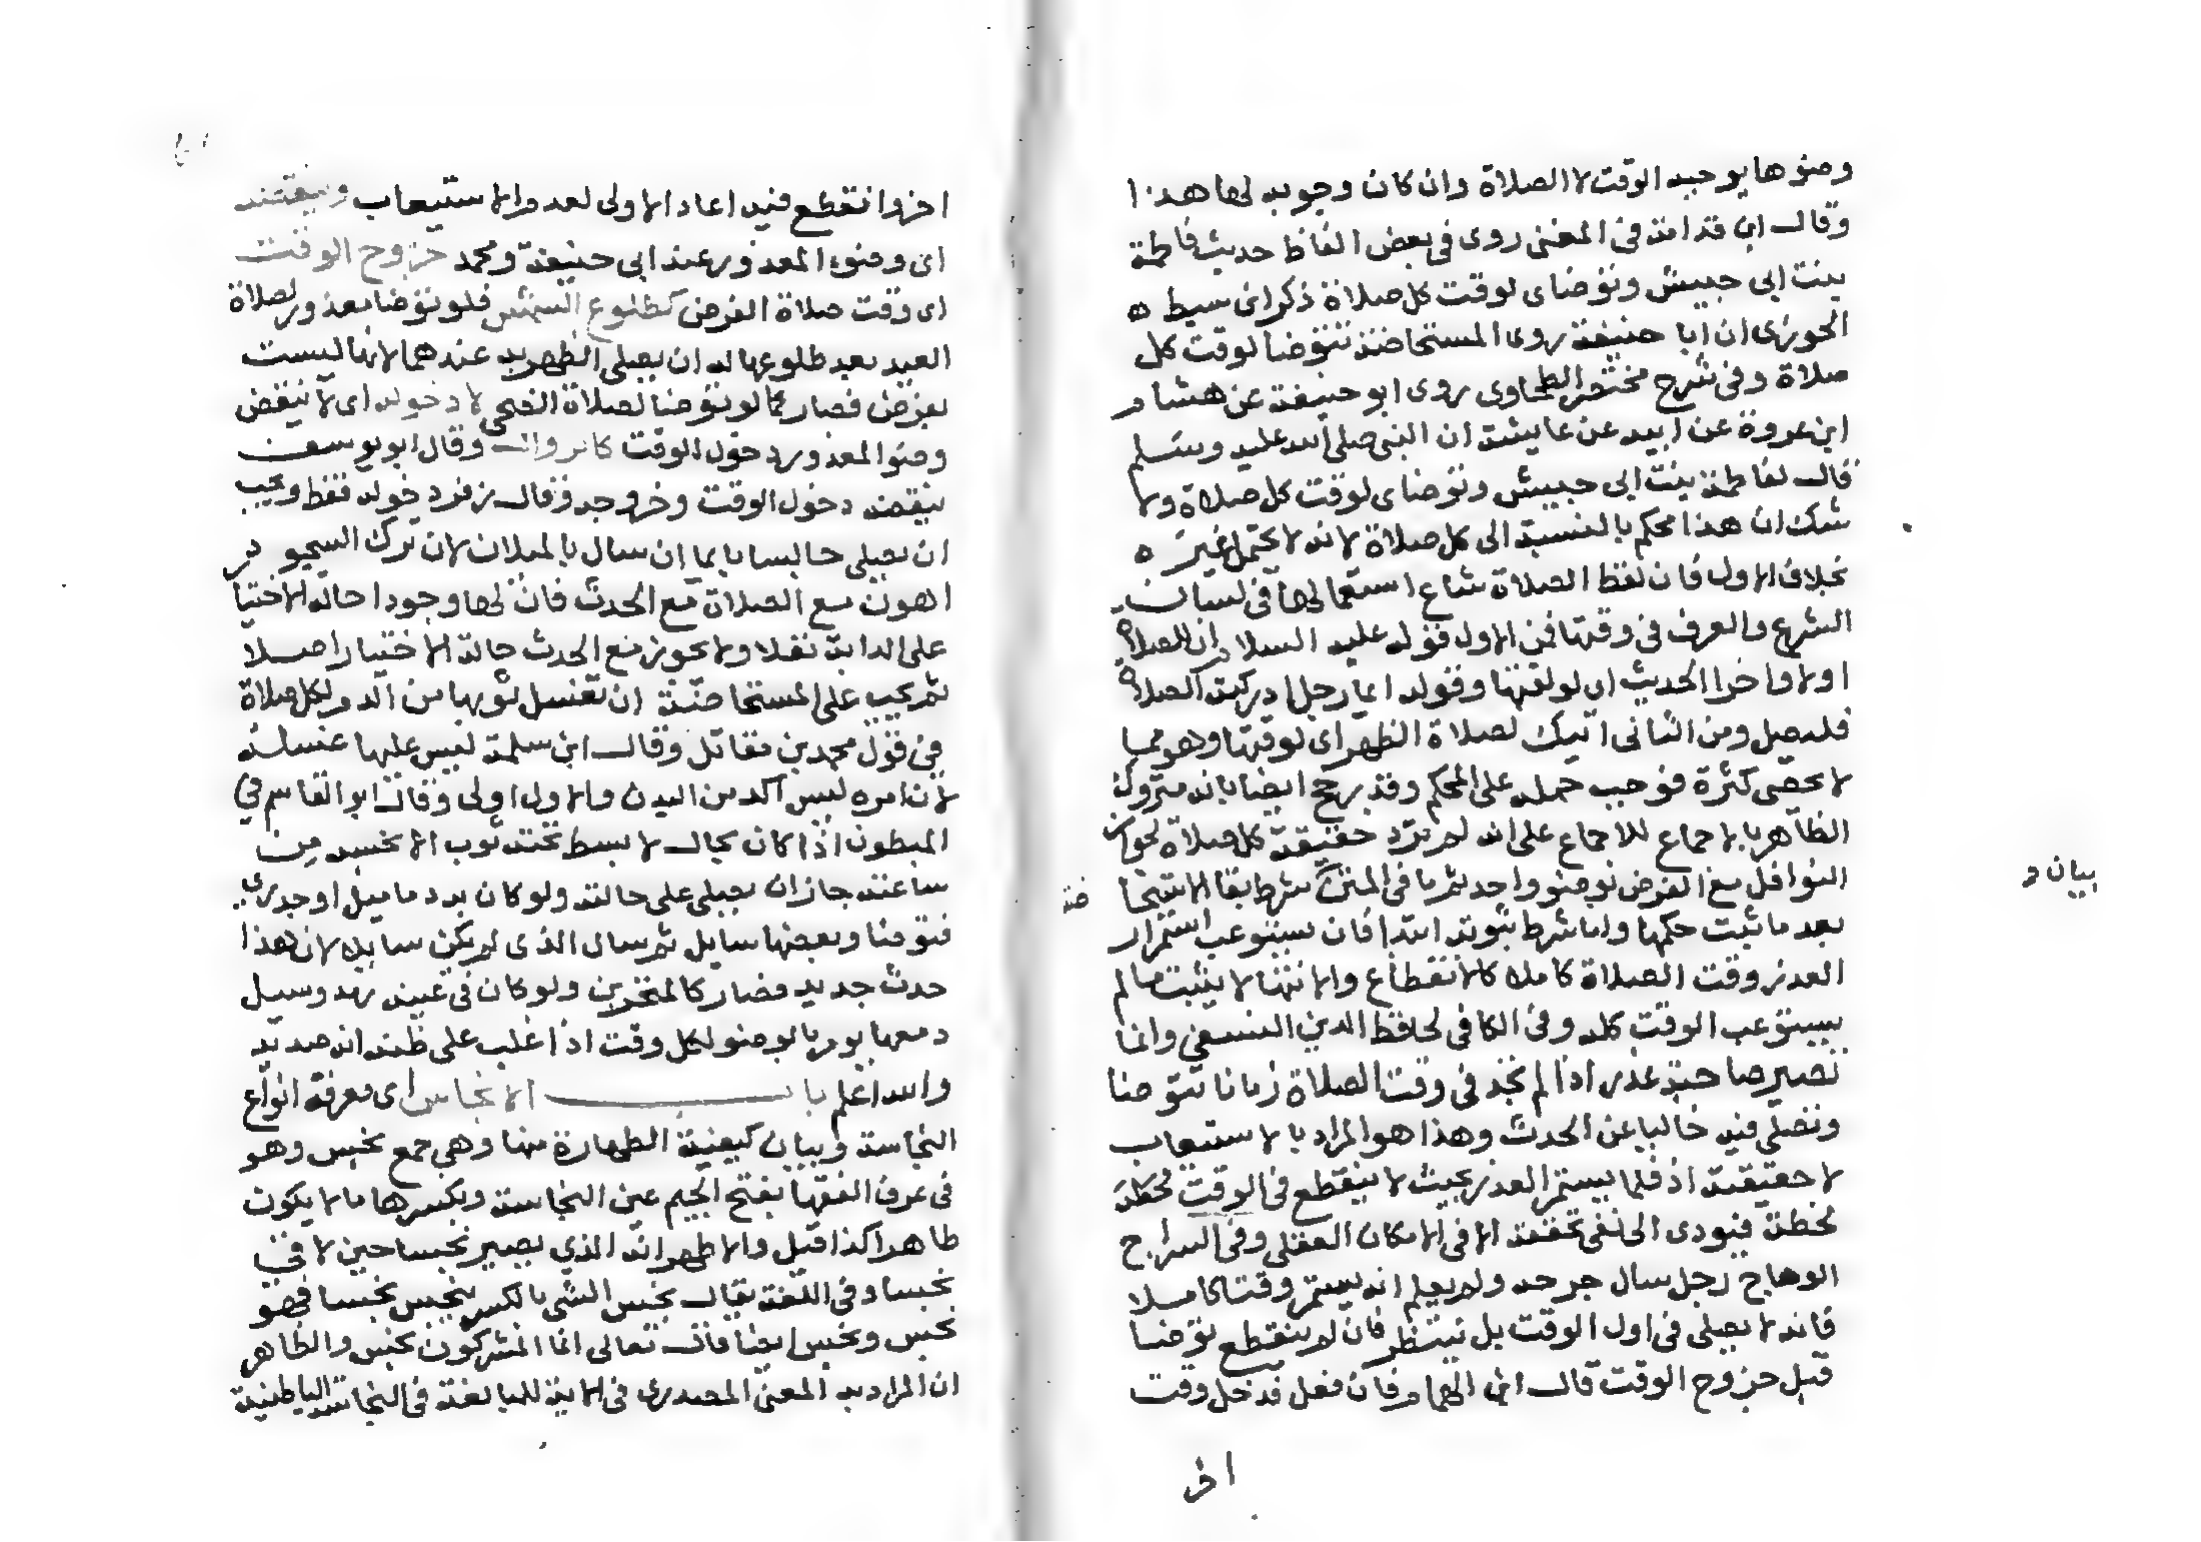 وضوها يوجبه الوقت لا الصلاة وان كان وجوبه لها هذا
وقال ابن قدامة في المغني روى في بعض الفاظ حديث فاطمة
بنت ابي حبيش وتوضاى لوقت كل صلاة ذكر ابن سبط ه
الجوزى ان ابا حنيفة روى المستحاضة تتوضا لوقت كل
صلاة وفي شرح مختصر الطحاوى روى ابو حنيفة عن هشام
ابن عروة عن ابيه عن عايشة ان النبي صلى الله عليه وسلم
قال لفاطمة بنت ابي حبيش وتوضاى لوقت كل صلاة ولا
شك ان هذا محكم بالنسبة الى كل صلاة لانه لا يحتمل غيره ه
بخلاف الاول فان لفظ الصلاة شاع استعمالها في لسان
الشرع والعرف في وقتها فمن الاول قوله عليه السلام ان للصلاة
اولا واخرا الحديث اى لوقتها وقوله ايما رجل ادركته الصلاة
فليصل ومن الثاني اتيك لصلاة الظهر اى لوقتها وهو مما
لا يحصى كثرة فوجب حمله على المحكم وقد رجح ايضا بانه متروك
الظاهر بالاجماع للاجماع على انه لم يرد حقيقة كل صلاة لجواز
النوافل مع الفرض بوضو واحد ثم ما في المتن شرط بقا الاستحا
ضة
بعد ما ثبت حكمها واما شرط ثبوته ابتدا فان يستوعب استمرار
العذر وقت الصلاة كاملا كالانقطاع والانتها لا يثبت مالم
يستوعب الوقت كله وفي الكافي لحافظ الدين النسفي وانما
تصير صاحبة عذر اذا لم تجد في وقت الصلاة زمانا تتوضا
وتصلي فيه خاليا عن الحدث وهذا هو المراد بالاستيعاب
لا حقيقة اذ قلما يستمر العذر بحيث لا ينقطع في الوقت لحظة
لحظة فيودى الى نفي تحققه الا في الامكان العقلي وفي السراج
الوهاج رجل سال جرحه ولم يعلم انه يستمر وقتا كاملا
فانه لا يصلى في اول الوقت بل ينتظر فان لم ينقطع توضا
قبل خروج الوقت قال ابن الهمام فان فعل فدخل وقت
اخر
بيان و
اخر وانقطع فيه اعاد الاولى لعدم الاستيعاب وينقضه
اى وضوء المعذور عند ابي حنيفة ومحمد خروج الوقت
اى وقت صلاة الفرض كطلوع الشمس فلو توضا معذور لصلاة
العيد بعد طلوعها له ان يصلى الظهر به عندهما لانها ليست
بفرض فصار كما لو توضا لصلاة الضحى لا دخوله اى لا ينقض
وضو المعذور دخول الوقت كالزوال وقال ابو يوسف
ينقضه دخول الوقت وخروجه وقال زفر دخوله فقط ويجب
ان يصلى جالسا بايما ان سال بالميلان لان ترك السجود
اهون مع الصلاة مع الحدث فان لها وجودا حالة الاختيا
على الدابة نفلا ولا يجوز مع الحدث حالة الاختيار اصلا
ثم يجب على المستحاضة ان تغسل ثوبها من الدم لكل صلاة
في قول محمد بن مقاتل وقال ابن سلمة ليس عليها غسله
لان امره ليس اكد من البدن والاول اولى وقال ابو القاسم في
المبطون اذا كان بحال لا يبسط تحته ثوب الا نجسه من
ساعته جاز ان يصلى على حالته ولو كان به دماميل او جدرى
فتوضا وبعضها سايل ثم سال الذى لم يكن سايلا لان هذا
حدث جديد فصار كالمنخرين ولو كان في عينه رمد وسيل
دمعها يومر بالوضو لكل وقت اذا غلب على ظنه انه صديد
والله اعلم باب الانجاس اى معرفة انواع
النجاسة وبيان كيفية الطهارة منها وهي جمع نجس وهو
في عرف الفقها بفتح الجيم عين النجاسة وبكسرها مالا يكون
طاهرا كذا قيل والاظهر انه الذي يصير نجسا حين لاقى
نجسا وفي اللغة يقال نجس الشي بالكسر ينجس نجسا فهو
نجس ونجس ايضا قال تعالى انما المشركون نجس والظاهر
ان المراد به المعنى المصدرى في الاية للمبالغة في النجاسة الباطنية